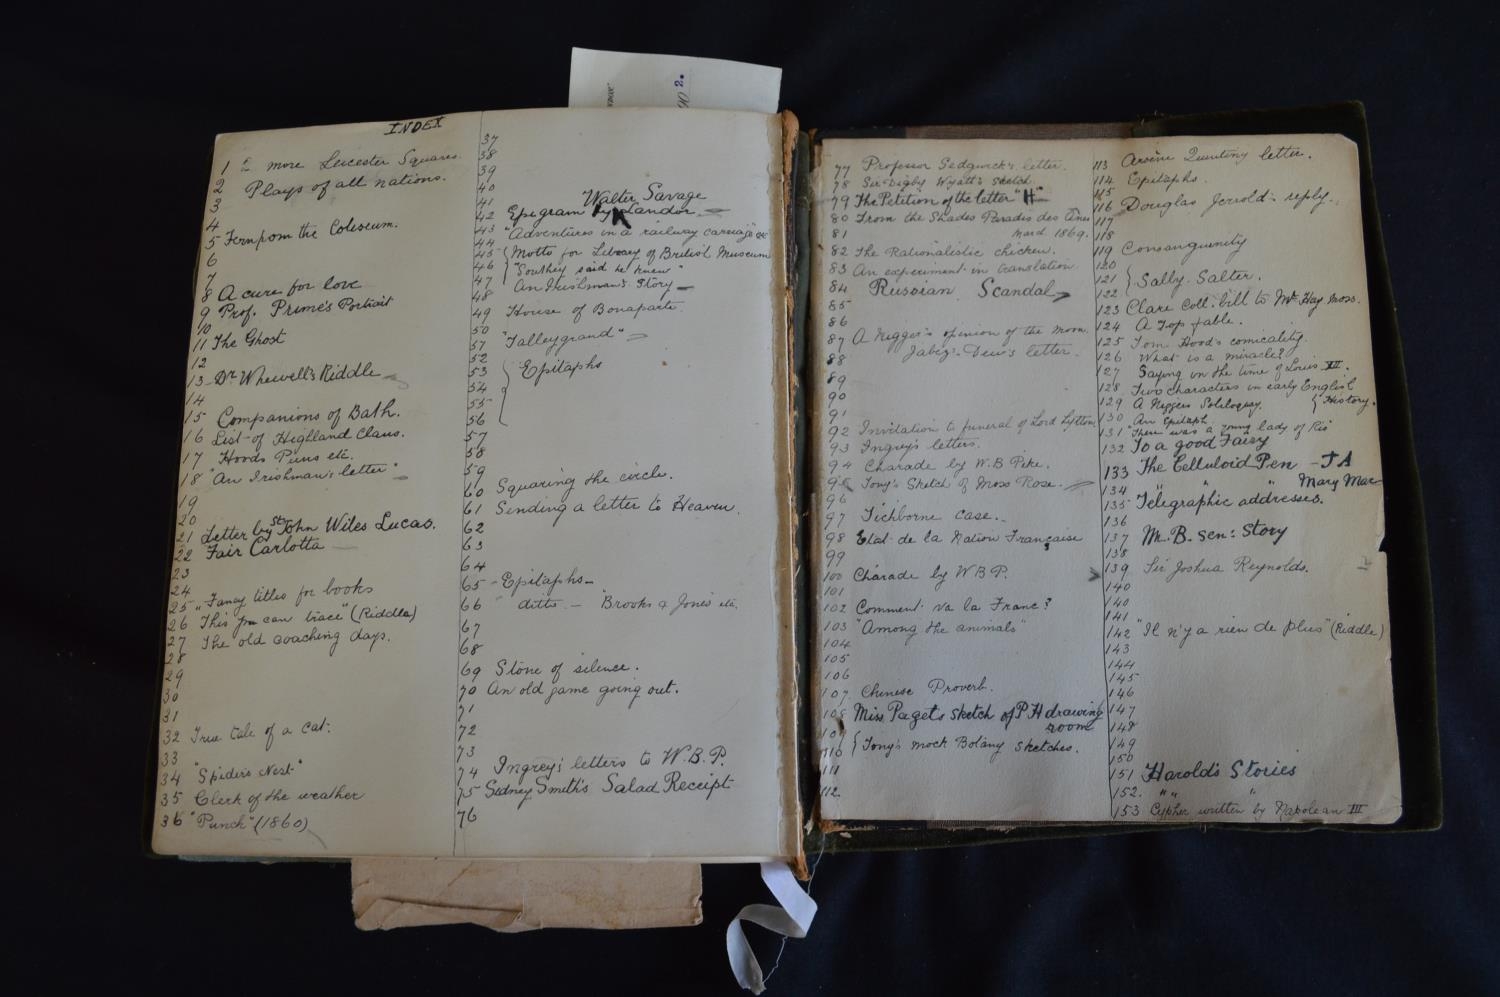 INDEX
1 2 more Leicester Squares.
2 Plays of all nations.
3
4
5 Fern from the Coloseum.
6
7
8 A cure for love
9 Prof. Prime's Portrait
10
11 The Ghost
12
13 Dr Whewell's Riddle
14
15 Companions of Bath.
16 List of Highland Clans.
17 Hoods Puns etc.
18 "An Irishman's letter"
19
20
21 Letter by Sr John Wiles Lucas.
22 Fair Carlotta
23
24
25 "Fancy titles for books
26 "This you can trace" (Riddle)
27 The old coaching days.
28
29
30
31
32 True tale of a cat.
33
34 "Spider's Nest"
35 Clerk of the weather
36 "Punch" (1860)
37
38
39
40
41 Walter Savage
42 Epigram by Landor
43 "Adventures in a railway carriage" etc
44
45 Motto for Library of British Museum
46 "Southey said he knew"
47 An Irishman's story
48
49 House of Bonaparte.
50
51 "Talleygrand"
52
53 Epitaphs
54
55
56
57
58
59
60 Squaring the circle.
61 Sending a letter to Heaven.
62
63
64
65 Epitaphs
66 " ditto. - "Brooks & Jones" etc.
67
68
69 Stone of silence.
70 An old game going out.
71
72
73
74 Ingrey's letters to W.B.P.
75 Sidney Smith's Salad Receipt
76
77 Professor Sedgwick's letter.
78 Sir Digby Wyatt's Sketch
79 The Petition of the letter "H"
80 From the Shades Paradis des Ânes
81 March 1869.
82 The Rationalistic chicken.
83 An experiment in translation.
84 Russian Scandal
85
86
87 A Nigger's opinion of the moon.
88 Jabez Dew's letter.
89
90
91
92 Invitation to funeral of Lord Lytton
93 Ingrey's letters.
94 Charade by W.B Pike.
95 Tony's Sketch of Moss Rose.
96
97 Tichborne case.
98 Etat de la Nation Française
99
100 Charade by W B P.
101
102 Comment va la Franc?
103 "Among the animals"
104
105
106
107 Chinese Proverb.
108 Miss Paget's sketch of P. H drawing room
109
110 Tony's mock Botany sketches.
111
112.
113 Arsène Quintiny letter.
114 Epitaphs.
115
116 Douglas Jerrold's reply.
117
118
119 Consanguinity
120
121 Sally Salter.
122
123 Clare Coll: bill to Mr Hay Moss.
124 A Top fable.
125 Tom Hood's comicality.
126 What is a miracle?
127 Saying in the time of Louis XVI.
128 Two characters in early English History.
129 A Niggers Soliloquy.
130 An Epitaph
131 "There was a young lady of Rio"
132 To a good Fairy
133 The Celluloid Pen - J A
134 " " " Mary Mac
135 Telegraphic addresses.
136
137 Mr. B. sen: Story
138
139 Sir Joshua Reynolds.
140
140
141
142 "Il n'y a rien de plus" (Riddle)
143
144
145
146
147
148
149
150
151 Harold's Stories
152. " " "
153 Cypher written by Napolean III